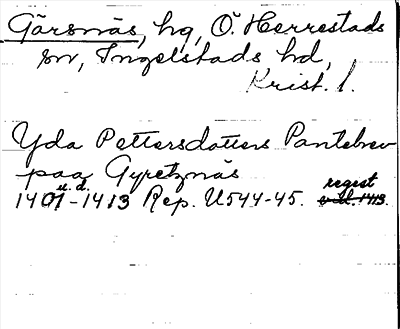 Gärsnäs, hg, Ö. Herrestads
sn, Ingelstads hd,
Krist. l.
Yda Pettersdatters Pantebrev
paa Gyretznäs
u. d.
1401-1413 Rep. U544-45. regest